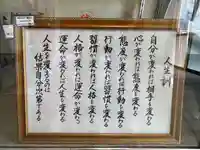 人生訓
自分が変われば相手も変わる
心が変われば態度も変わる
態度が変われば行動も変わる
行動が変われば習慣も変わる
習慣が変われば人格も変わる
人格が変われば運命が変わる
運命が変われば人生も変わる
人生を変えるのは
結局自分次第である